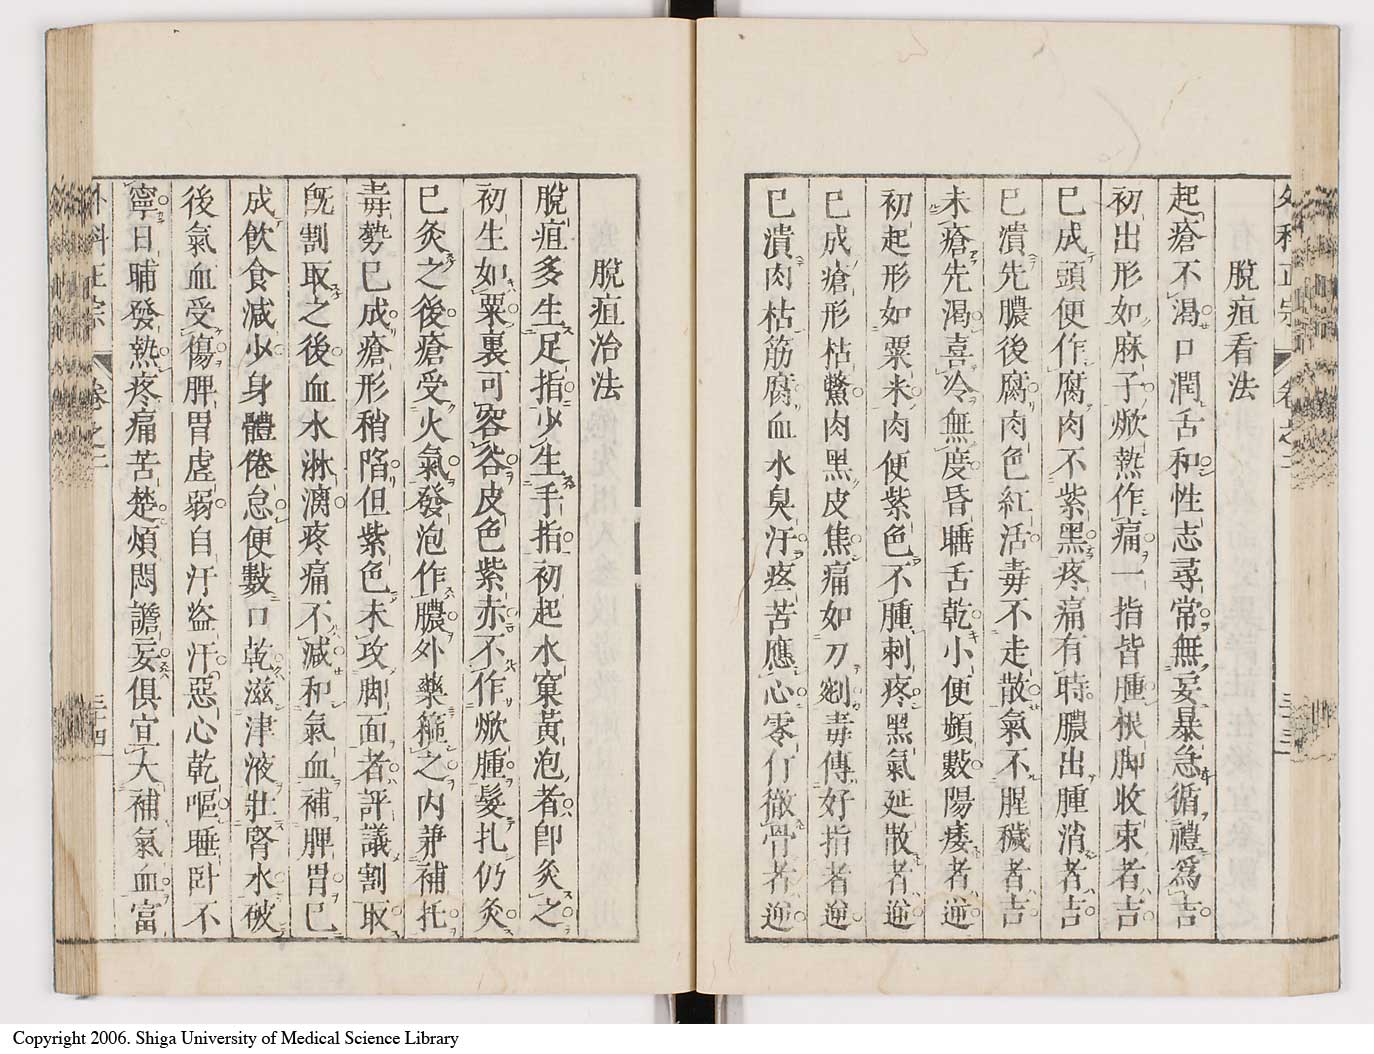 外科正宗 卷之二 三十三
脫疽看法
起瘡不渴口潤舌和性志尋常無妄暴急循禮爲吉
初出形如麻子焮熱作痛一指皆腫根脚收束者吉
已成頭便作腐肉不紫黑疼痛有時膿出腫消者吉
已潰先膿後腐肉色紅活毒不走散氣不腥穢者吉
未瘡先渴喜冷無度昏睡舌乾小便頻數陽痿者逆
初起形如粟米肉便紫色不腫刺疼黑氣延散者逆
已成瘡形枯癟肉黑皮焦痛如刀剜毒傳好指者逆
已潰肉枯筋腐血水臭汙疼苦應心零仃徹骨者逆
脫疽治法
脫疽多生足指少生手指初起水窠黃泡者卽灸之
初生如粟裏可容谷皮色紫赤不作焮腫髮扎仍灸
已灸之後瘡受火氣發泡作膿外藥箍之內兼補托
毒勢已成瘡形稍陷但紫色未攻脚面者評議割取
旣割取之後血水淋漓疼痛不減和氣血補脾胃已
成飮食減少身體倦怠便數口乾滋津液壯腎水破
後氣血受傷脾胃虛弱自汗盜汗惡心乾嘔睡臥不
寧日晡發熱疼痛苦楚煩悶譫妄俱宜大補氣血富
外科正宗 卷之二 三十四
Copyright 2006. Shiga University of Medical Science Library